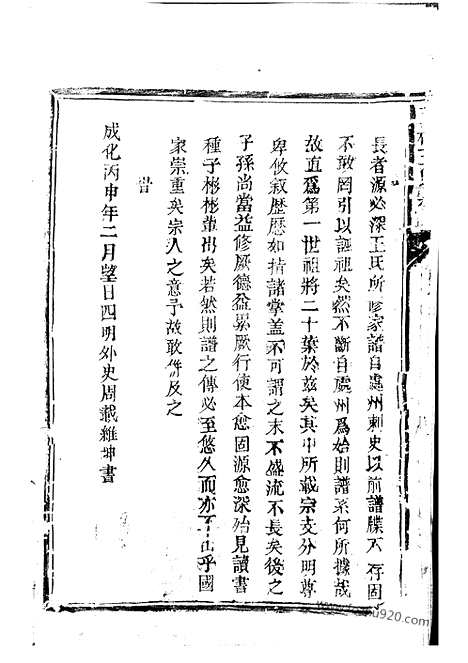 長者源必深王氏所修家譜自處州刺史以前譜牒不存固
不敢罔引以誣祖矣然不斷自處州爲始則譜系何所據哉
故直爲第一世祖將二十葉於茲矣其中所載宗支分明尊
卑攸叙歷歷如指諸掌盖不可謂之末不盛流不長矣後之
子孫尚當益修厥德益累厥行使本愈固源愈深始見讀書
種子彬彬輩出矣若然則譜之傳必至悠久而亦不出乎國
家崇重矣宗人之意予故敢併及之
旹
成化丙申年二月望日四明外史周載維坤書